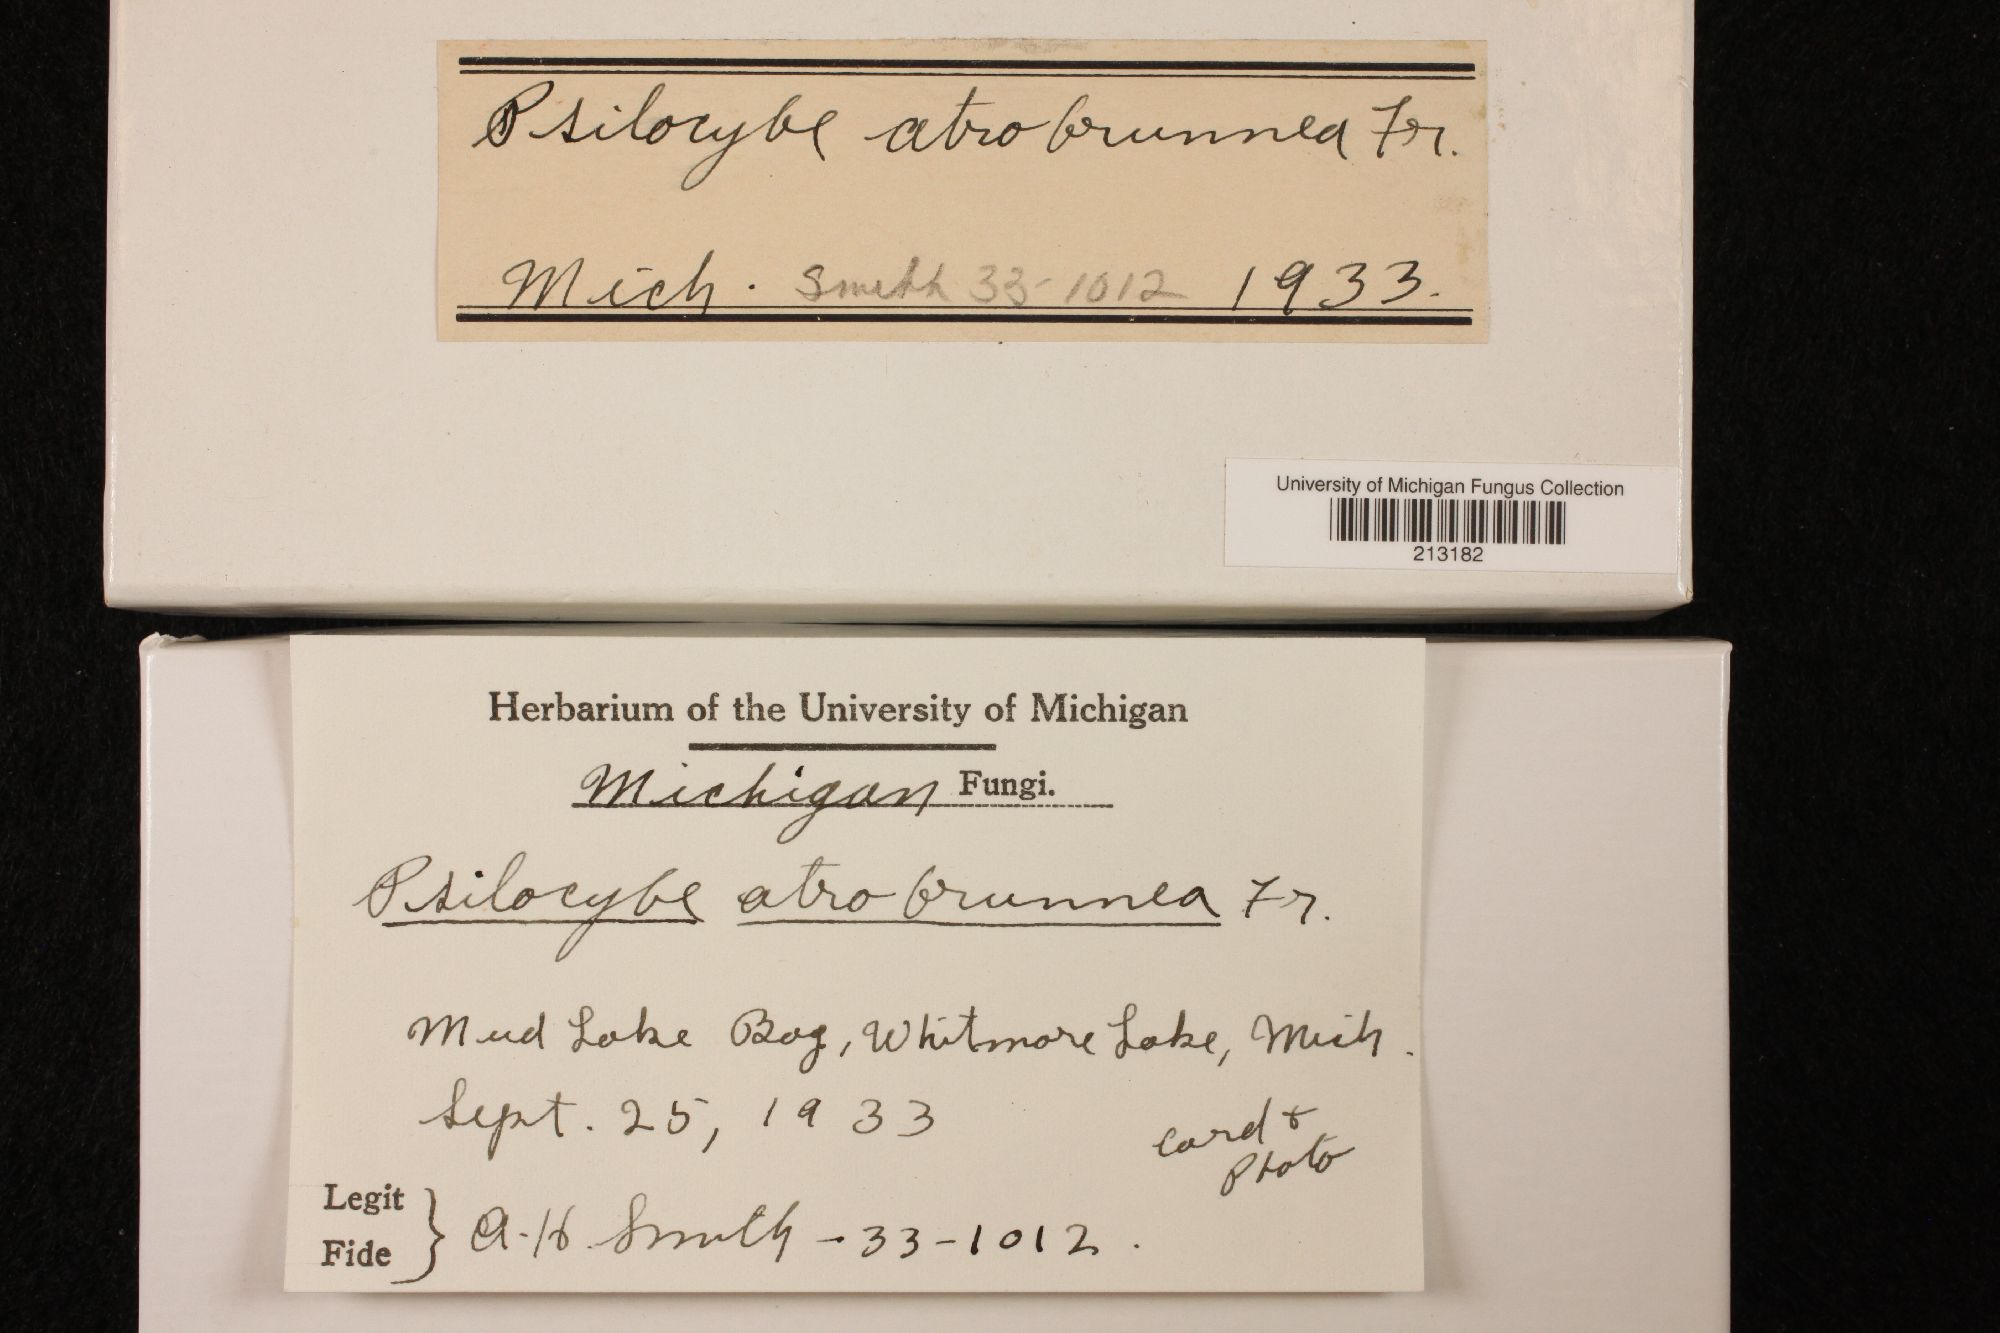 Psilocybe atrobrunnea Fr.
Mich. Smith 33-1012 1933.
University of Michigan Fungus Collection
213182
Herbarium of the University of Michigan
Michigan Fungi.
Psilocybe atrobrunnea Fr.
Mud Lake Bog, Whitmore Lake, Mich.
Sept. 25, 1933
card &
Photo
Legit
Fide
A. H. Smith - 33-1012.